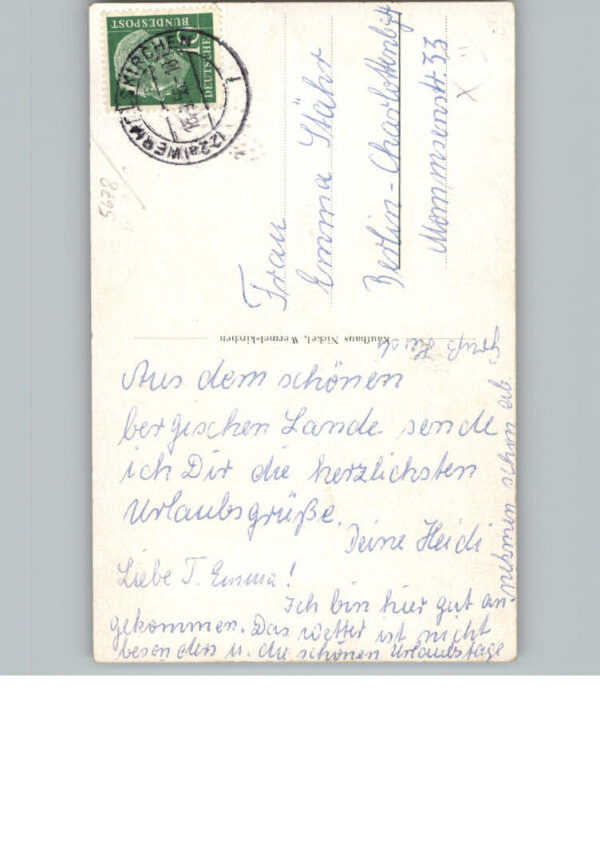 DEUTSCHE
BUNDESPOST
10
(22a) WERMELSKIRCHEN
1
5678
Frau
Emma Stähr
Berlin-Charlottenb.
Mommsenstr. 33
Kaufhaus Nickel, Wermelskirchen
Aus dem schönen
bergischen Lande sende
ich Dir die herzlichsten
Urlaubsgrüße.
Deine Heidi
Liebe T. Emma!
Ich bin hier gut an-
gekommen. Das Wetter ist nicht
besonders u. die schönen Urlaubstage
nehmen schon ab.
Gruß